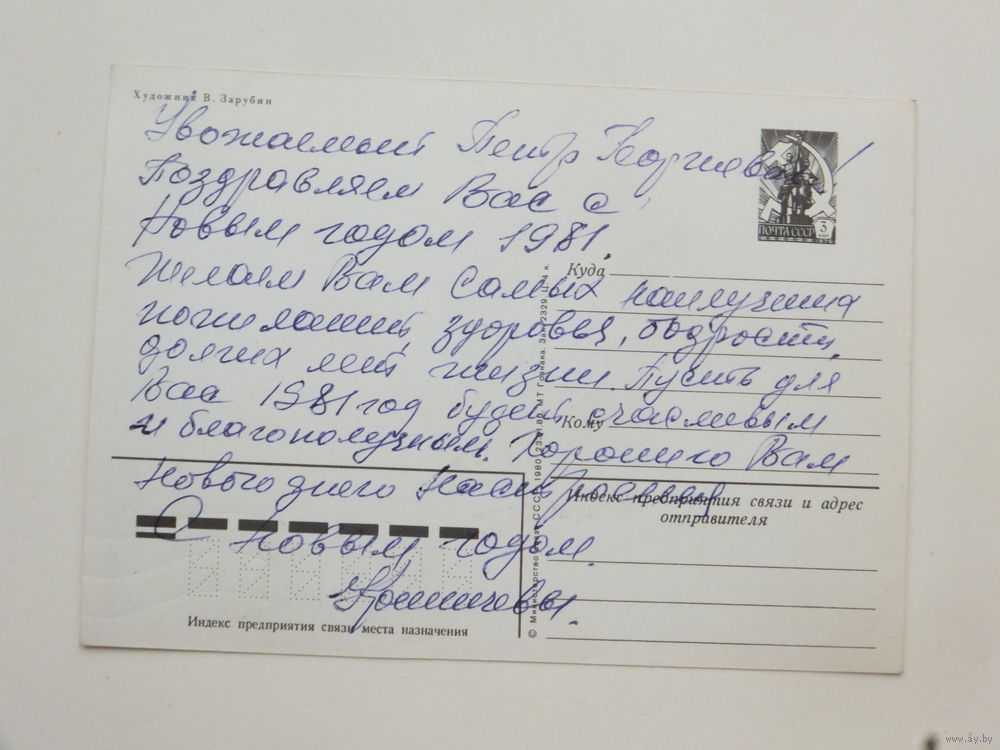 Художник В. Зарубин
Уважаемый Петр
Поздравляем Вас с
Новым годом 1981.
Желаем Вам самых наилучших
пожеланий, здоровья, бодрости,
долгих лет жизни. Пусть для
Вас 1981 год будет счасливым
и благополучным. Хорошего Вам
Новогоднего настроения
С Новым годом.
ПОЧТА СССР
3
КОП
1976
Куда
Кому
Индекс предприятия связи и адрес
отправителя
Индекс предприятия связи места назначения
© Министерство связи СССР. 1980.
МТ Гознака.
www.ay.by